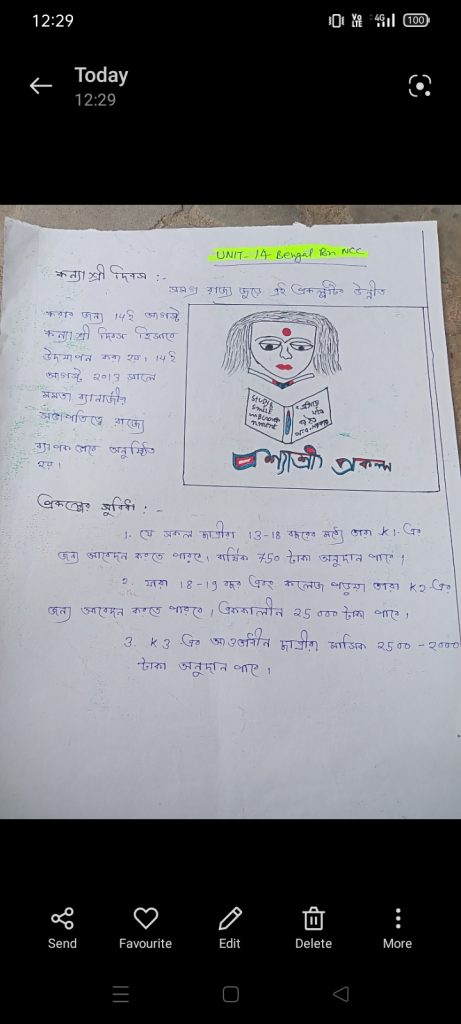 12:29
Vo LTE 4G 100
Today
12:29
UNIT- 14 Bengal Bn NCC
কন্যাশ্রী দিবস :-
সমগ্র রাজ্য জুড়ে এই প্রকল্পটির উন্নীত
করার জন্য 14ই আগস্ট
কন্যাশ্রী দিবস হিসাবে
উদযাপন করা হয়। 14ই
আগস্ট ২০১৩ সালে
মমতা ব্যানার্জীর
সভাপতিত্বে রাজ্যে
ব্যাপক ভাবে অনুষ্ঠিত
হয়।
STUDY
SMILE
প্রকল্প
প্রকল্পের সুবিধা :-
1. যে সকল ছাত্রীরা 13-18 বছরের মধ্যে তারা K1-এর
জন্য আবেদন করতে পারবে। বার্ষিক 750 টাকা অনুদান পাবে।
2. যারা 18-19 বছর এবং কলেজ পড়ুয়া তারা K2-এর
জন্য আবেদন করতে পারবে। এককালীন 25000 টাকা পাবে।
3. K3-এর আওতাধীন ছাত্রীরা মাসিক 2500-2000
টাকা অনুদান পাবে।
Send Favourite Edit Delete More